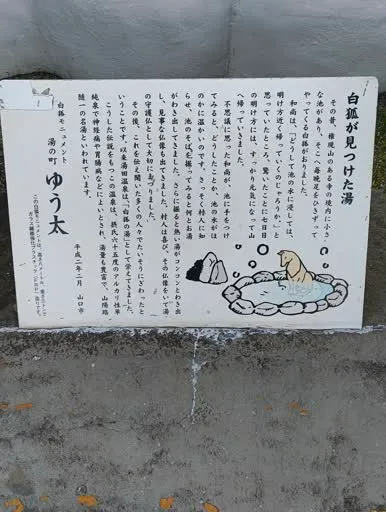 白狐が見つけた湯
その昔、権現山のある寺の境内に小さ
な池があり、そこへ毎晩足をひきずって
やってくる白狐がおりました。
和尚は、「どうして池の水に浸しては、
明け方近く帰っていくのじゃろうか。」と
思っていたところ、驚いたことに七日目
の明け方には、すっかり元気になって山
へ帰っていきました。
不思議に思った和尚が、池に手をつけ
てみると、どうしたことか、池の水がほ
のかに温かいのです。さっそく村人に知
らせ、池のそばを掘ってみると何とお湯
がわき出してきました。さらに掘ると熱い湯がコンコンとわき出
し、見事な仏像も出てきました。村人は喜び、その仏像をいで湯
の守護仏として大切にまつりました。
その後、これを伝え聞いた多くの人々でたいそうにぎわったと
いうことです。以来湯田温泉は、「白狐の湯」として栄えてきました。
こうした伝説をもつこの温泉は、摂氏六十五度のアルカリ性単
純泉で神経痛や胃腸病などによいとされ、湯量も豊富で、山陽路
随一の名湯といわれています。
平成二年二月 山口市
白狐モニュメント
湯の町 ゆう太